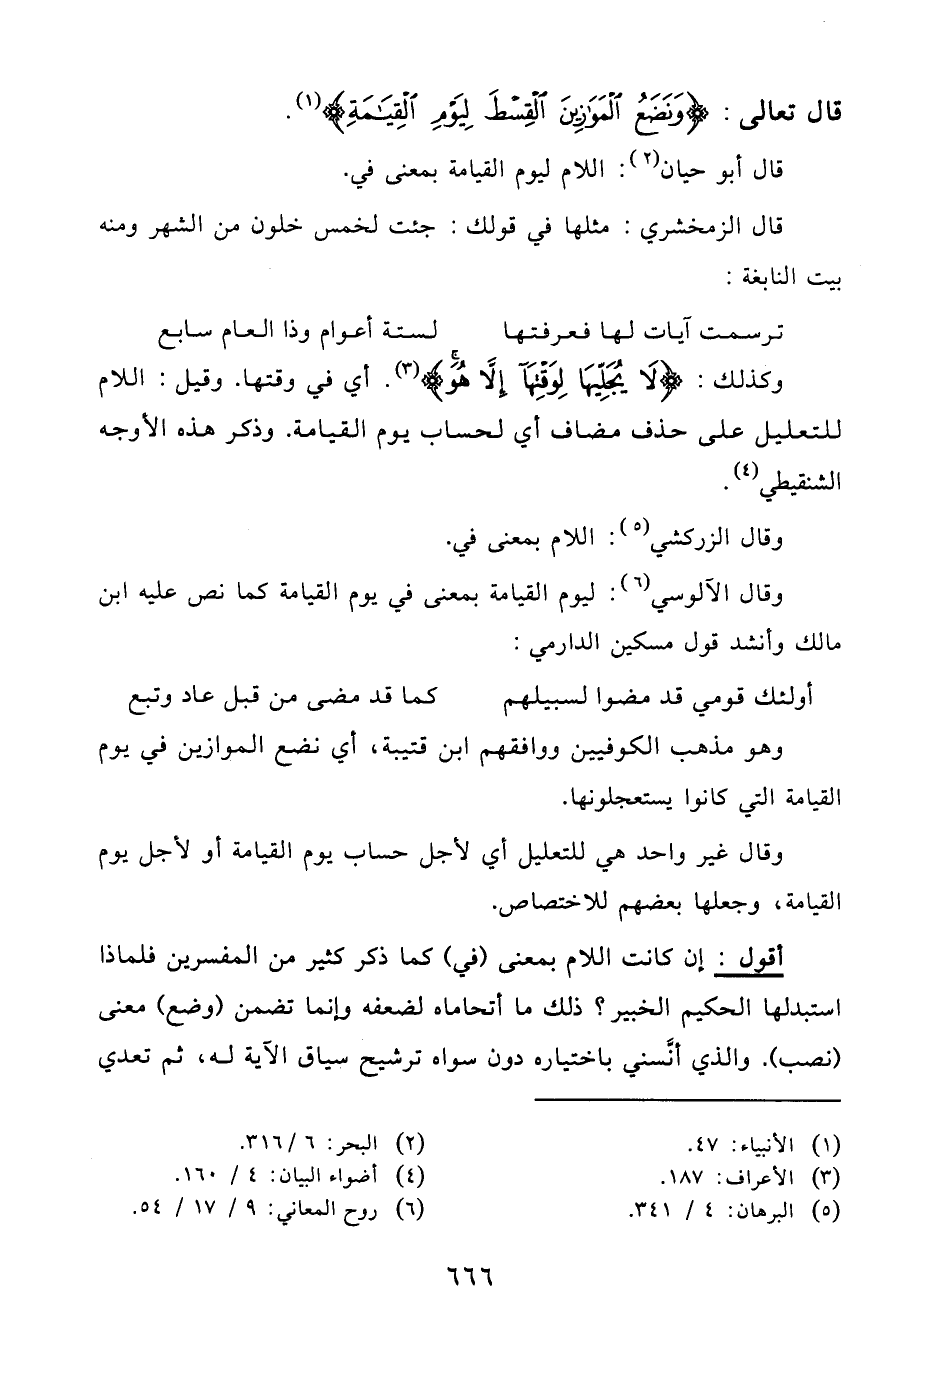 قال تعالى : ﴿وَنَضَعُ الْمَوَٰزِينَ الْقِسْطَ لِيَوْمِ الْقِيَٰمَةِ﴾(١).
قال أبو حيان(٢): اللام ليوم القيامة بمعنى في.
قال الزمخشري : مثلها في قولك : جئت لخمس خلون من الشهر ومنه
بيت النابغة :
ترسمت آيات لها فعرفتها لستة أعوام وذا العام سابع
وكذلك : ﴿لَا يُجَلِّيهَا لِوَقْتِهَآ إِلَّا هُوَۚ﴾(٣). أي في وقتها. وقيل : اللام
للتعليل على حذف مضاف أي لحساب يوم القيامة. وذكر هذه الأوجه
الشنقيطي(٤).
وقال الزركشي(٥): اللام بمعنى في.
وقال الآلوسي(٦): ليوم القيامة بمعنى في يوم القيامة كما نص عليه ابن
مالك وأنشد قول مسكين الدارمي :
أولئك قومي قد مضوا لسبيلهم كما قد مضى من قبل عاد وتبع
وهو مذهب الكوفيين ووافقهم ابن قتيبة، أي نضع الموازين في يوم
القيامة التي كانوا يستعجلونها.
وقال غير واحد هي للتعليل أي لأجل حساب يوم القيامة أو لأجل يوم
القيامة، وجعلها بعضهم للاختصاص.
أقول : إن كانت اللام بمعنى (في) كما ذكر كثير من المفسرين فلماذا
استبدلها الحكيم الخبير؟ ذلك ما أتحاماه لضعفه وإنما تضمن (وضع) معنى
(نصب). والذي أنَّسني باختياره دون سواه ترشيح سياق الآية له، ثم تعدي
(١) الأنبياء: ٤٧. (٢) البحر: ٦ /٣١٦.
(٣) الأعراف: ١٨٧. (٤) أضواء البيان: ٤ / ١٦٠.
(٥) البرهان: ٤ / ٣٤١. (٦) روح المعاني: ٩ / ١٧ / ٥٤.
٦٦٦